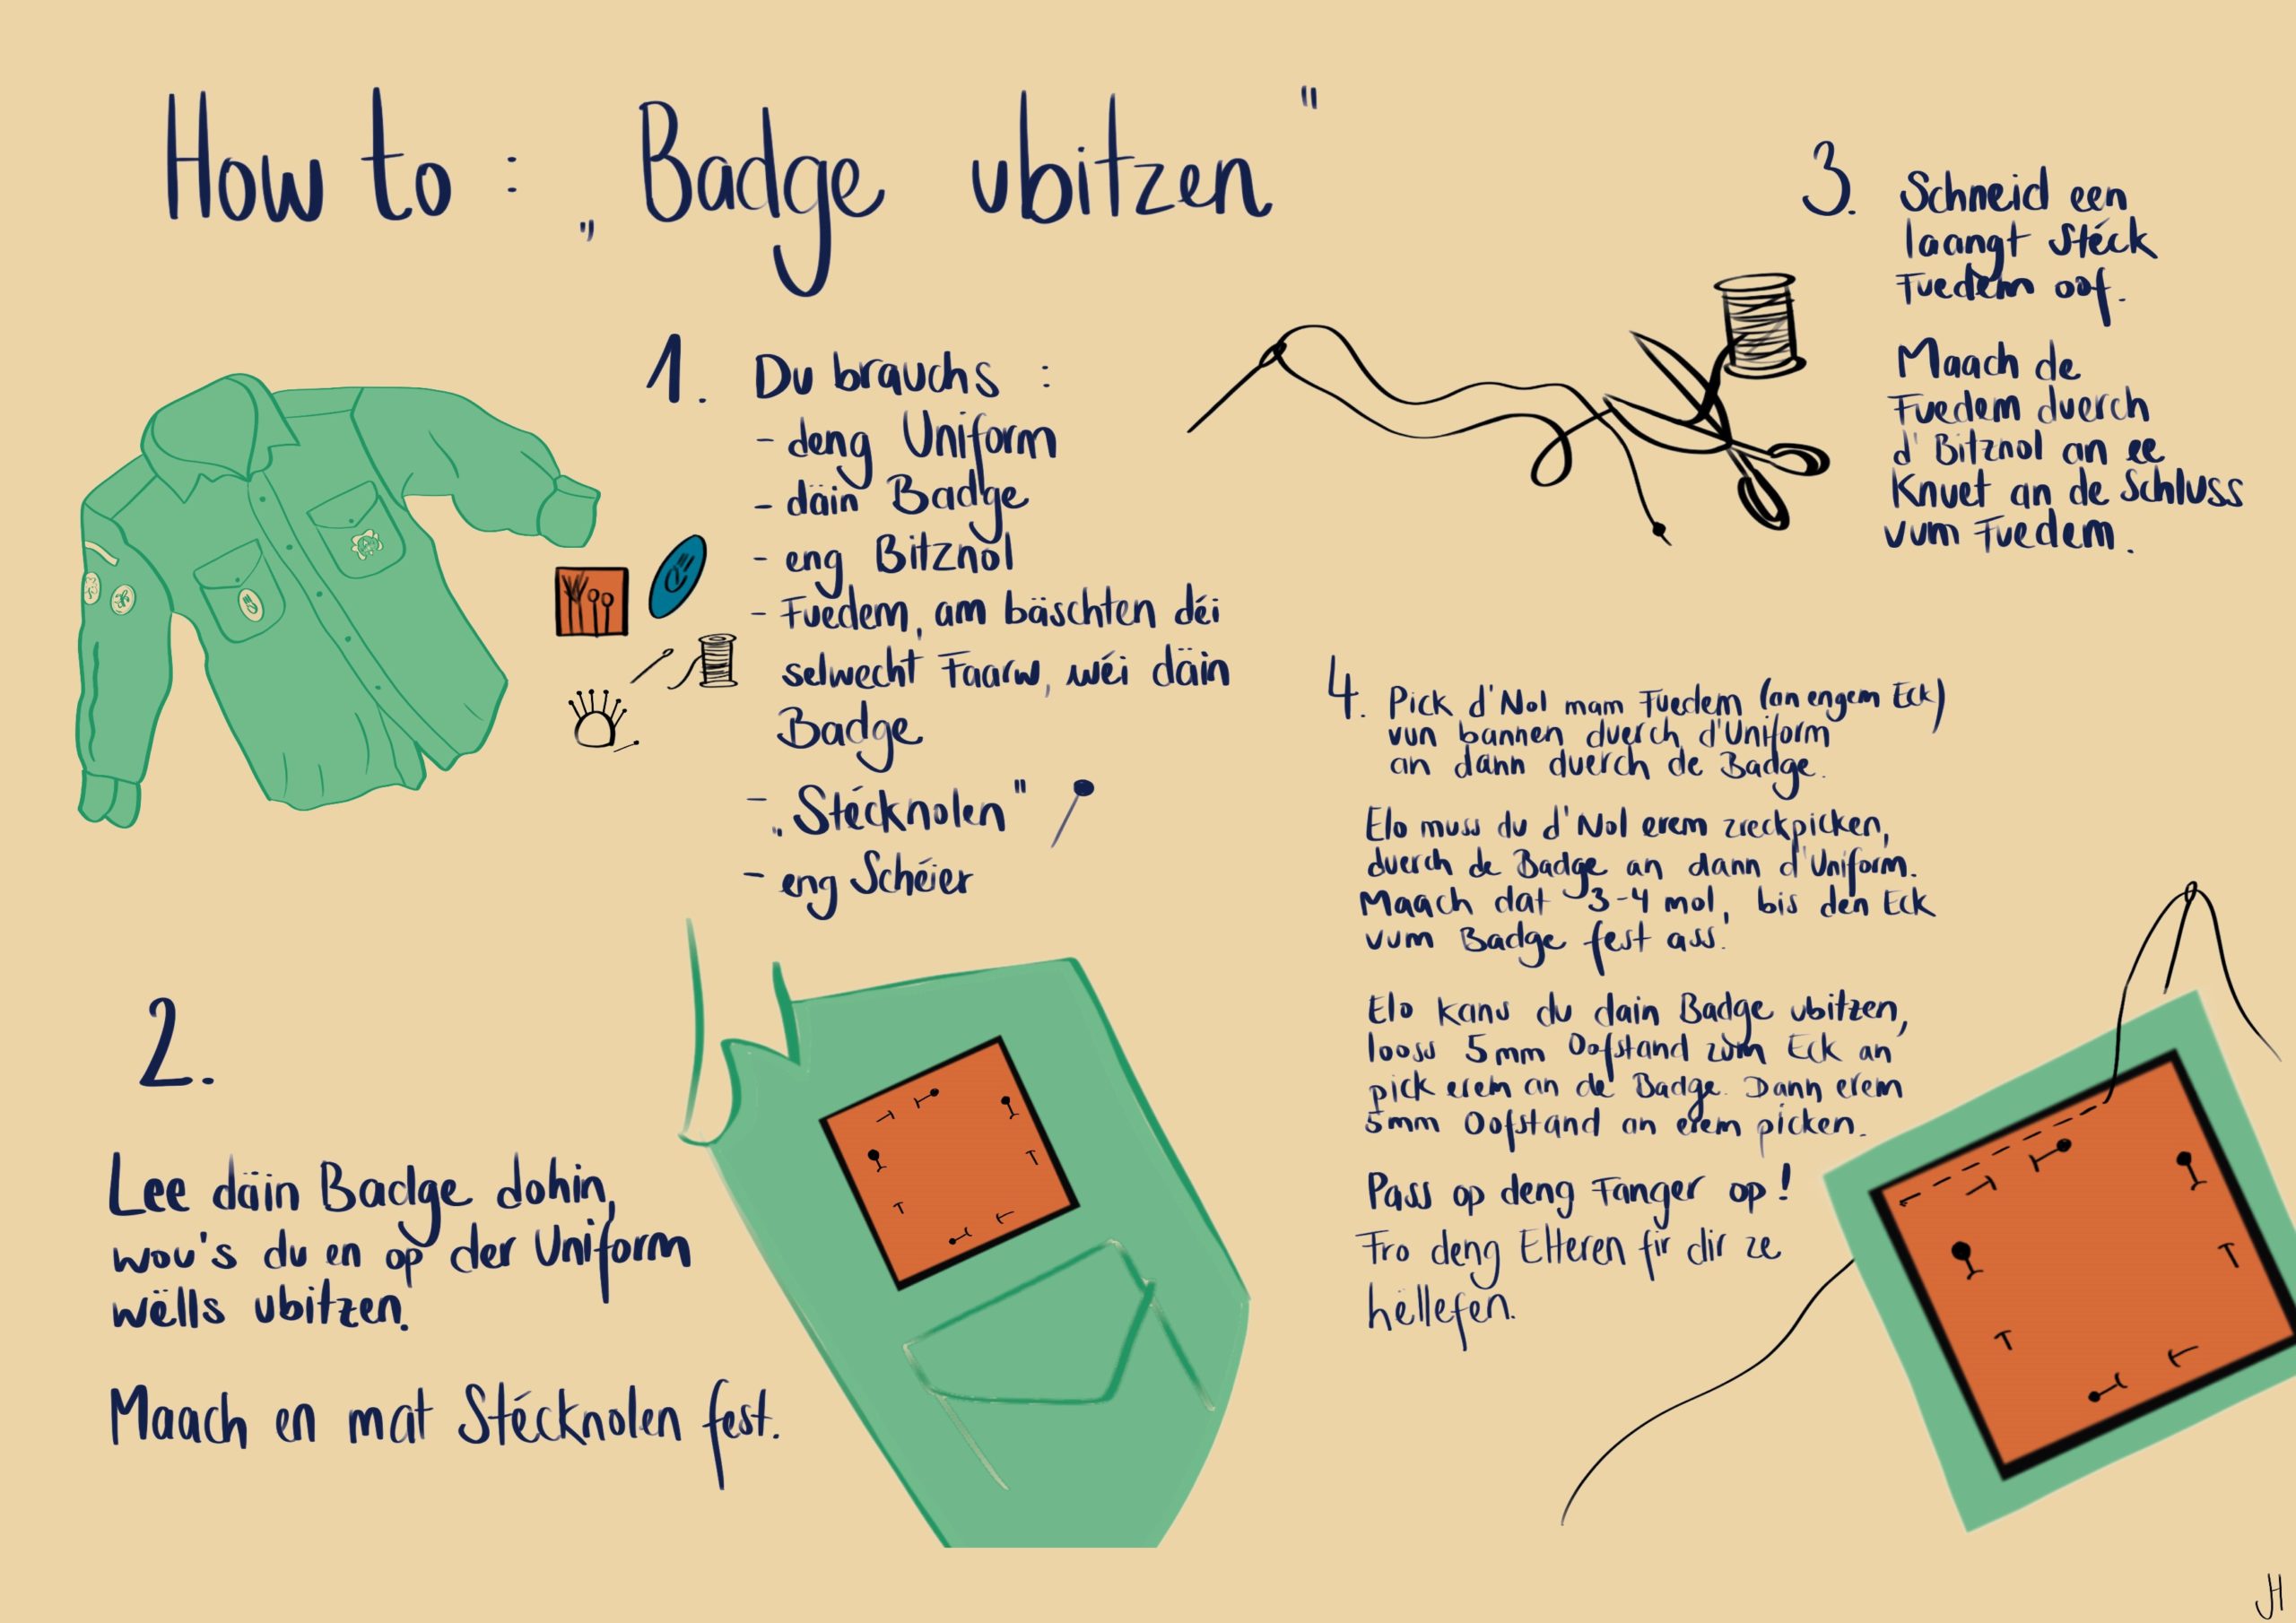 How to : „Badge ubitzen"
1. Du brauchs :
- deng Uniform
- däin Badge
- eng Bitznol
- Fuedem, am bäschten déi
selwecht Faarw, wéi däin
Badge
- „Stécknolen"
- eng Schéier
2.
Lee däin Badge dohin,
wou's du en op der Uniform
wëlls ubitzen.
Maach en mat Stécknolen fest.
3. Schneid een
laangt Stéck
Fuedem oof.
Maach de
Fuedem duerch
d'Bitznol an ee
Knuet an de Schluss
vum Fuedem.
4. Pick d'Nol mam Fuedem (an engem Eck)
vun bannen duerch d'Uniform
an dann duerch de Badge.
Elo muss du d'Nol erem zreckpicken,
duerch de Badge an dann d'Uniform.
Maach dat 3-4 mol, bis den Eck
vum Badge fest ass.
Elo kans du dain Badge ubitzen,
looss 5mm Oofstand zum Eck an
pick erem an de Badge. Dann erem
5mm Oofstand an erem picken.
Pass op deng Fanger op!
Fro deng Elteren fir dir ze
hëllefen.
JH